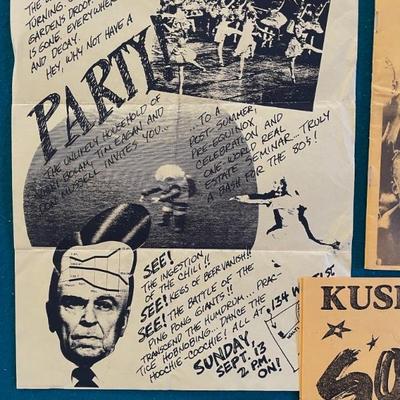 TURNING.
GARDENS DROOP.
IS GONE. EVERYWHERE
AND DECAY.
HEY, WHY NOT HAVE A
PARTY!
THE UNLIKELY HOUSEHOLD OF
BOLAM, TIM EAGAN AND
RUSSELL INVITES YOU...
...TO A
POST SUMMER,
PRE EQUINOX,
CELEBRATION AND
ONE-WORLD REAL
ESTATE SEMINAR...TRULY
A BASH FOR THE 80'S!
SEE! THE INGESTION
OF THE CHILI!!
SEE! KEGS OF BEER VANISH!!
SEE! THE BATTLE OF THE
PING PONG GIANTS!!
TRANSCEND THE HUMDRUM... PRAC-
TICE HOBNOBING... DANCE THE
HOOCHIE-COOCHIE! ALL AT
134
SUNDAY,
SEPT. 13
2 P.M.
ON!
KUS